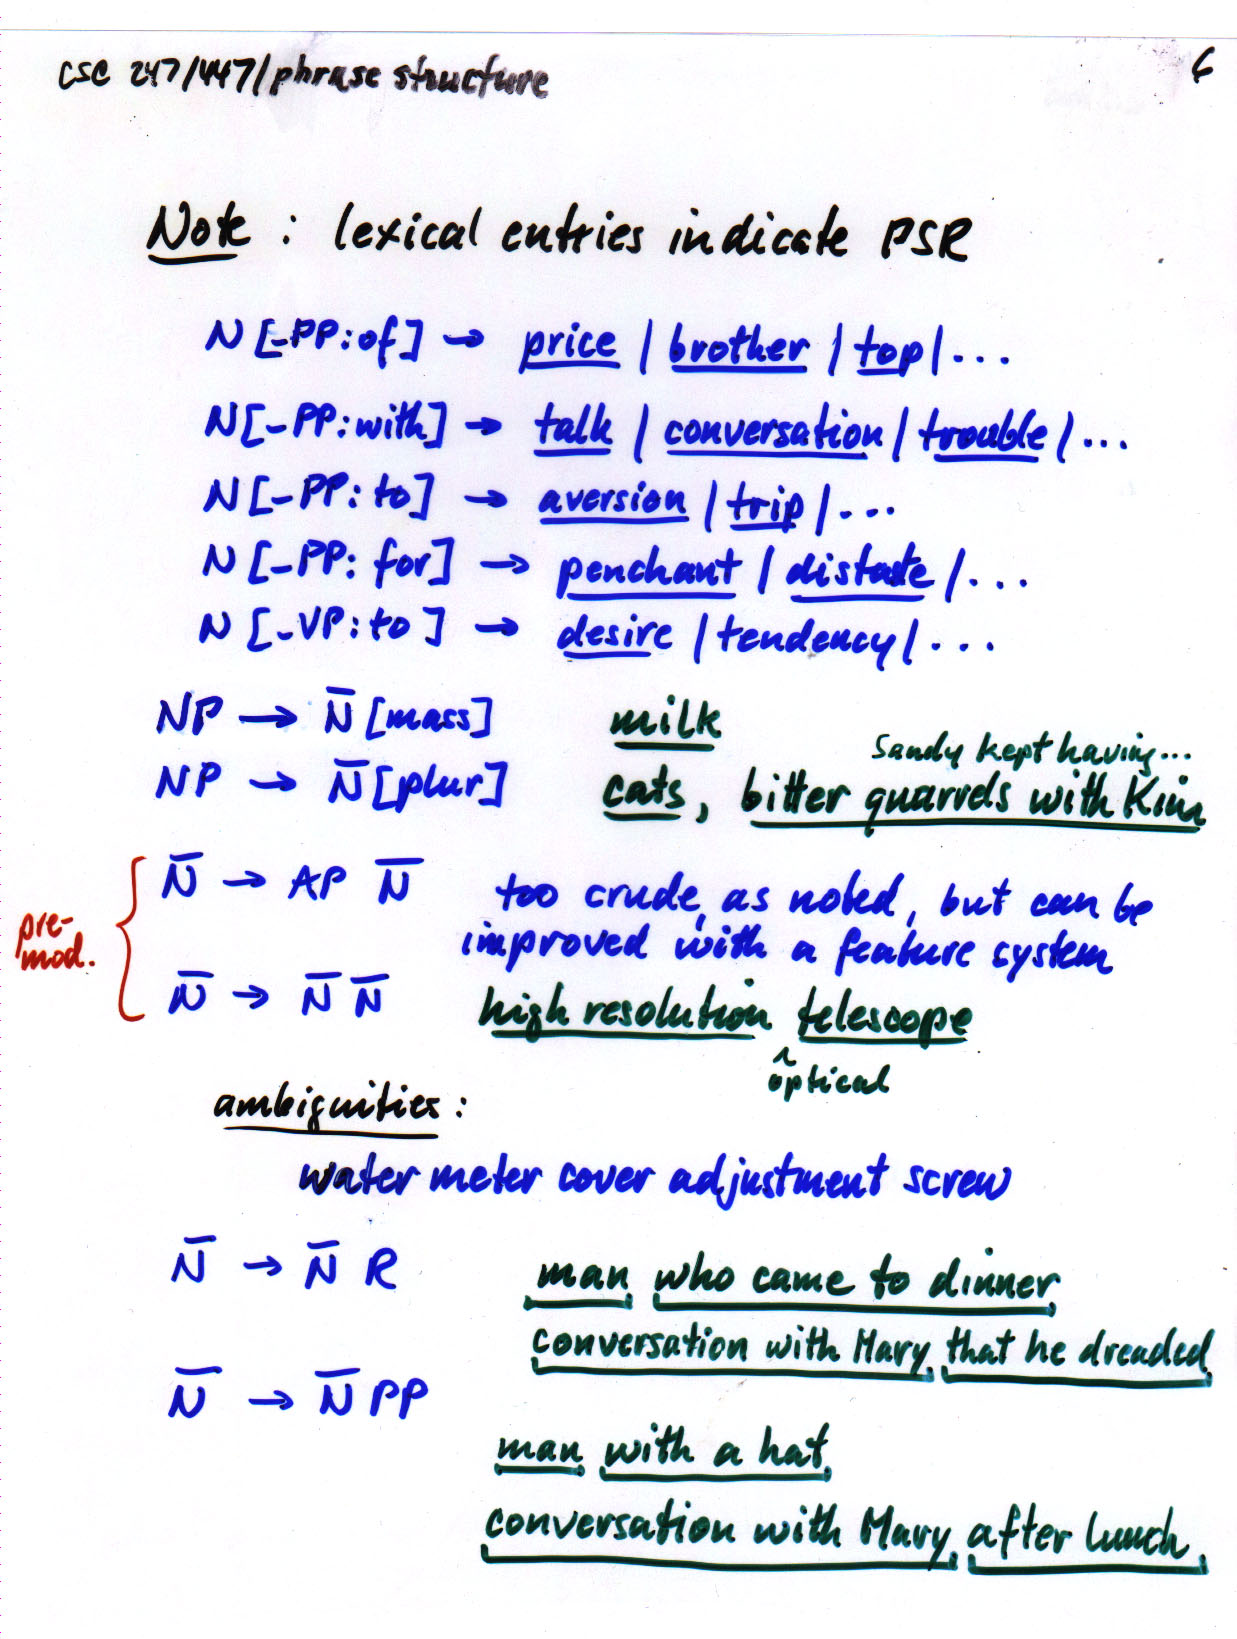 CSC 247/447/phrase structure 6
Note : lexical entries indicate PSR
N [_PP:of] → price | brother | top | ...
N [_PP:with] → talk | conversation | trouble | ...
N [_PP:to] → aversion | trip | ...
N [_PP:for] → penchant | distaste | ...
N [_VP:to] → desire | tendency | ...
NP → N̄ [mass] milk
Sandy kept having...
NP → N̄ [plur] cats, bitter quarrels with Kim
N̄ → AP N̄ too crude, as noted, but can be
pre-
mod. improved with a feature system
N̄ → N̄ N̄ high resolution telescope
^
optical
ambiguities :
water meter cover adjustment screw
N̄ → N̄ R man who came to dinner
conversation with Mary that he dreaded
N̄ → N̄ PP
man with a hat
conversation with Mary after lunch